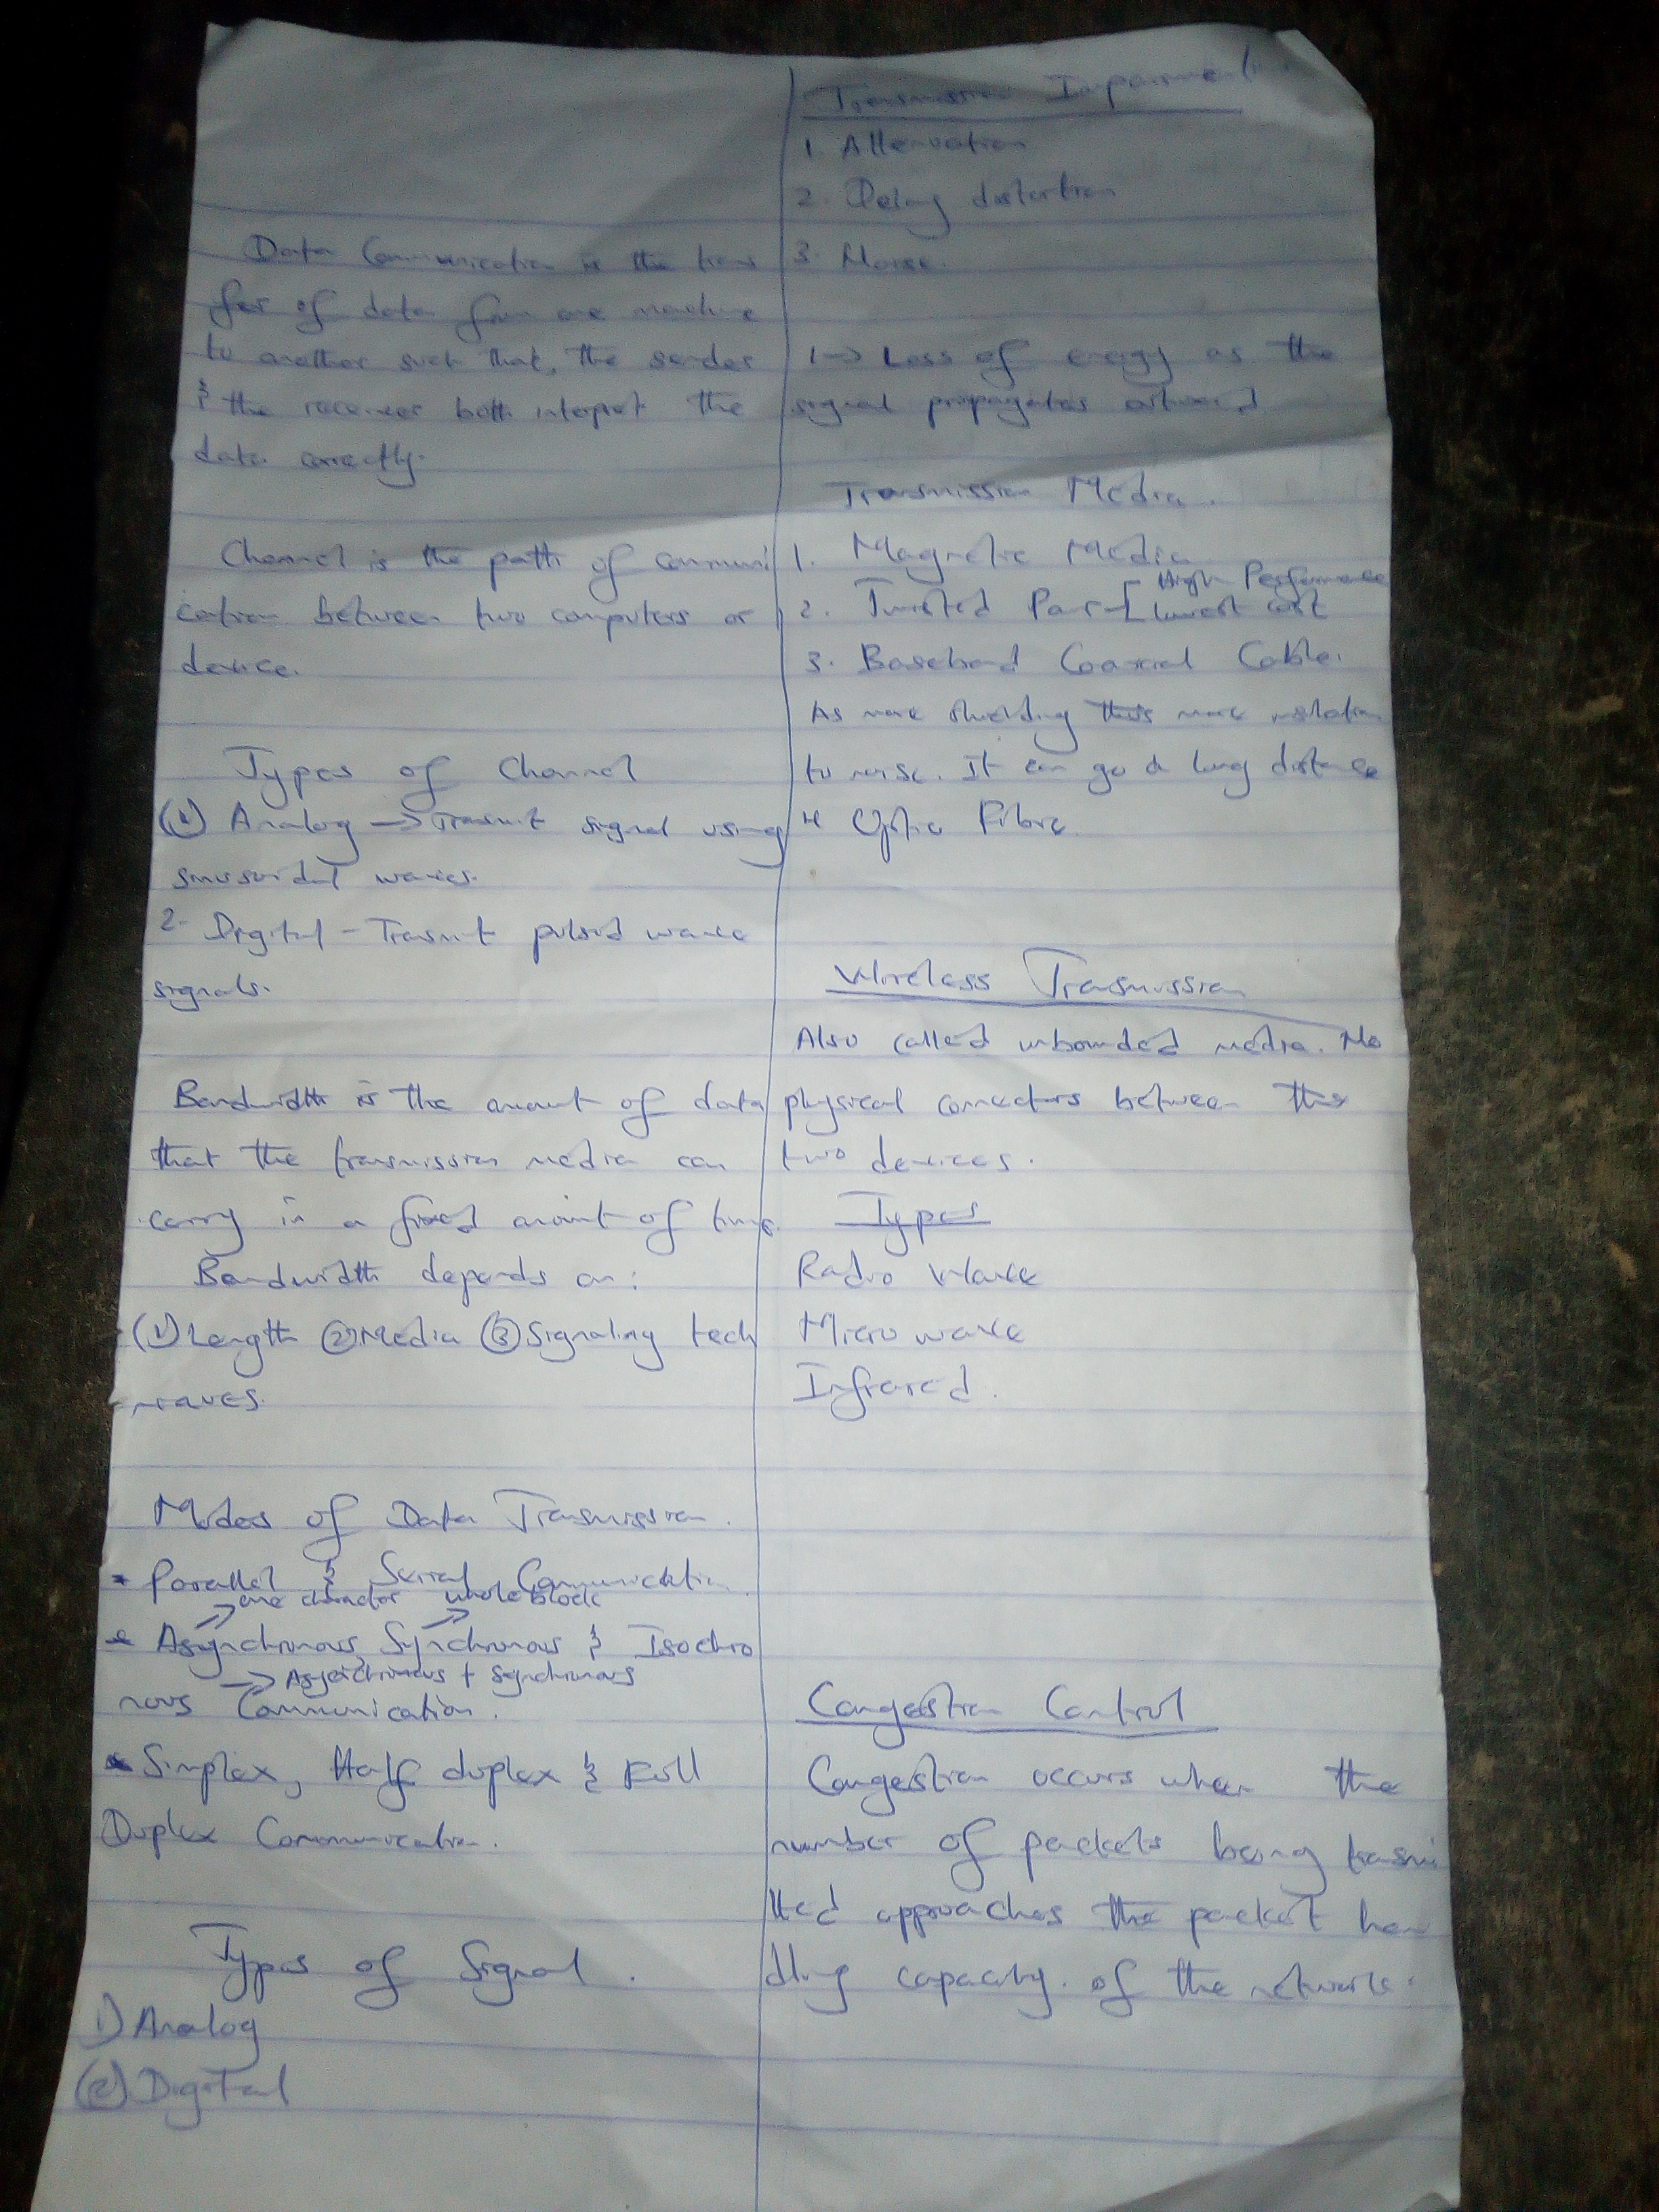 Data Communication is the trans
fer of data from one machine
to another such that, the sender
& the receiver both interpret the
data correctly.
Channel is the path of communi
cation between two computers or
device.
Types of Channel
(1) Analog → Transmit signal using
sinusoidal waves.
2- Digital - Trasmit pulsed wave
signals.
Bandwidth is the amount of data
that the transmission media can
carry in a fixed amount of time.
Bandwidth depends on:
(1) Length (2) Media (3) Signaling tech
Modes of Data Transmission.
* Parallel & Serial Communication
→ one character → whole block
* Asynchronous, Synchronous & Isochro
→ Asynchronous + Synchronous
nous Communication.
* Simplex, Half duplex & Full
Duplex Communication.
Types of Signal.
1) Analog
(2) Digital
Transmission Impairment
1. Attenuation
2. Delay distortion
3. Noise.
1 → Loss of energy as the
signal propagates outward
Transmission Media.
1. Magnetic Media
2. Twisted Pair [High Performance
lowest cost
3. Baseband Coaxial Cable.
As more shielding thus more isolation
to noise. It can go a long distance
4 Optic Fibre
Wireless Transmission
Also called unbounded media. No
physical connectors between the
two devices.
Types
Radio Wave
Micro wave
Infrared.
Congestion Control
Congestion occurs when the
number of packets being transmi
tted approaches the packet han
dling capacity of the network.